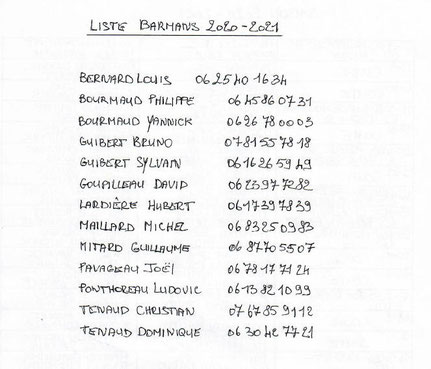 LISTE BARMANS 2020-2021
BERNARD LOUIS 06 25 40 16 34
BOURMAUD PHILIPPE 06 45 86 07 31
BOURMAUD YANNICK 06 26 78 00 03
GUIBERT BRUNO 07 81 55 78 18
GUIBERT SYLVAIN 06 16 26 59 49
GOUPILLEAU DAVID 06 23 97 72 82
LARDIÈRE HUBERT 06 17 39 78 39
MAILLARD MICHEL 06 83 25 09 83
MITARD GUILLAUME 06 87 70 55 07
PAVAGEAU JOËL 06 78 17 71 24
PONTHOREAU LUDOVIC 06 13 82 10 99
TENAUD CHRISTIAN 07 67 85 91 12
TENAUD DOMINIQUE 06 30 42 77 21